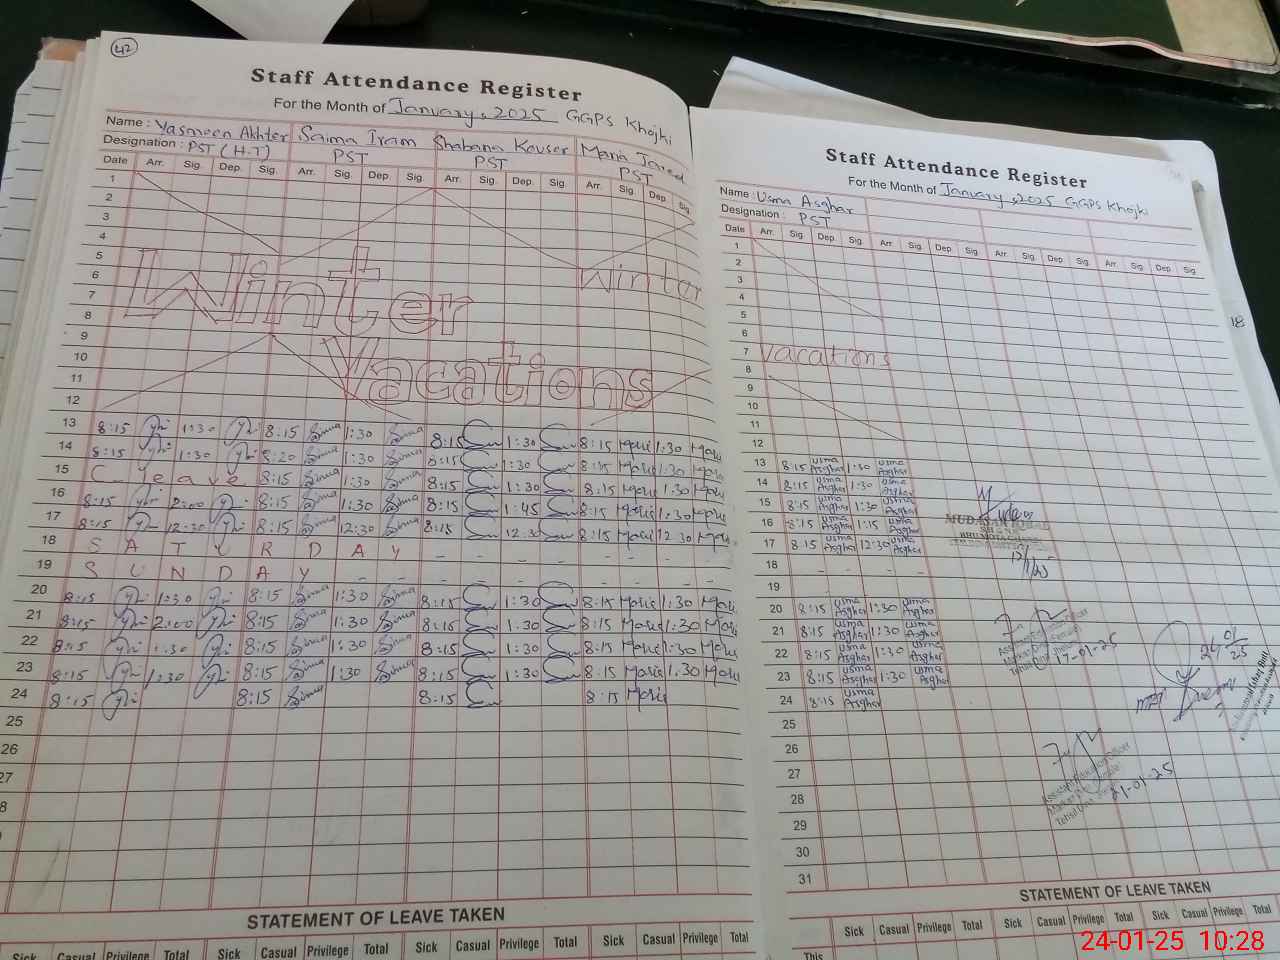 42
Staff Attendance Register
For the Month of January, 2025 GGPS Khojki
Name: Yasmeen Akhter Saima Iram Shabana Kouser Maria Javed
Designation: PST (H.T) PST PST PST
Date Arr. Sig. Dep. Sig. Arr. Sig. Dep. Sig. Arr. Sig. Dep. Sig. Arr. Sig. Dep. Sig.
1
2
3
4
5
6
7
8
9
10
11
12
Winter
Vacations
Winter
13 8:15 1:30 8:15 Sima 1:30 Sima 8:15 1:30 8:15 Maria 1:30 Maria
14 8:15 1:30 8:20 Sima 1:30 Sima 8:15 1:30 8:15 Maria 1:30 Maria
15 C. leave 8:15 Sima 1:30 Sima 8:15 1:30 8:15 Maria 1:30 Maria
16 8:15 2:00 8:15 Sima 1:30 Sima 8:15 1:45 8:15 Maria 1:30 Maria
17 8:15 12:30 8:15 Sima 12:30 Sima 8:15 12:30 8:15 Maria 12:30 Maria
18 S A T U R D A Y - - - - - - - -
19 S U N D A Y - - - - - - - - - -
20 8:15 1:30 8:15 Sima 1:30 Sima 8:15 1:30 8:15 Maria 1:30 Maria
21 8:15 2:00 8:15 Sima 1:30 Sima 8:15 1:30 8:15 Maria 1:30 Maria
22 8:15 1:30 8:15 Sima 1:30 Sima 8:15 1:30 8:15 Maria 1:30 Maria
23 8:15 1:30 8:15 Sima 1:30 Sima 8:15 1:30 8:15 Maria 1:30 Maria
24 8:15 8:15 Sima 8:15 8:15 Maria
25
26
27
8
STATEMENT OF LEAVE TAKEN
Sick Casual Privilege Total Sick Casual Privilege Total Sick Casual Privilege Total Sick Casual Privilege Total
Staff Attendance Register
For the Month of January, 2025 GGPS Khojki
Name: Usma Asghar
Designation: PST
Date Arr. Sig. Dep. Sig. Arr. Sig. Dep. Sig. Arr. Sig. Dep. Sig. Arr. Sig. Dep. Sig.
1
2
3
4
5
6
7 Vacations
8
9
10
11
12
13 8:15 Usma Asghar 1:30 Usma Asghar
14 8:15 Usma Asghar 1:30 Usma Asghar
15 8:15 Usma Asghar 1:30 Usma Asghar
16 8:15 Usma Asghar 1:15 Usma Asghar
17 8:15 Usma Asghar 12:30 Usma Asghar
18 - - - -
19
20 8:15 Usma Asghar 1:30 Usma Asghar
21 8:15 Usma Asghar 1:30 Usma Asghar
22 8:15 Usma Asghar 1:30 Usma Asghar
23 8:15 Usma Asghar 1:30 Usma Asghar
24 8:15 Usma Asghar
25
26
27
28
29
30
31
18
Assistant Education Officer
17-01-25
24/01/25
Assistant Education Officer
21-01-25
STATEMENT OF LEAVE TAKEN
Sick Casual Privilege Total Sick Casual Privilege Total
This
24-01-25 10:28